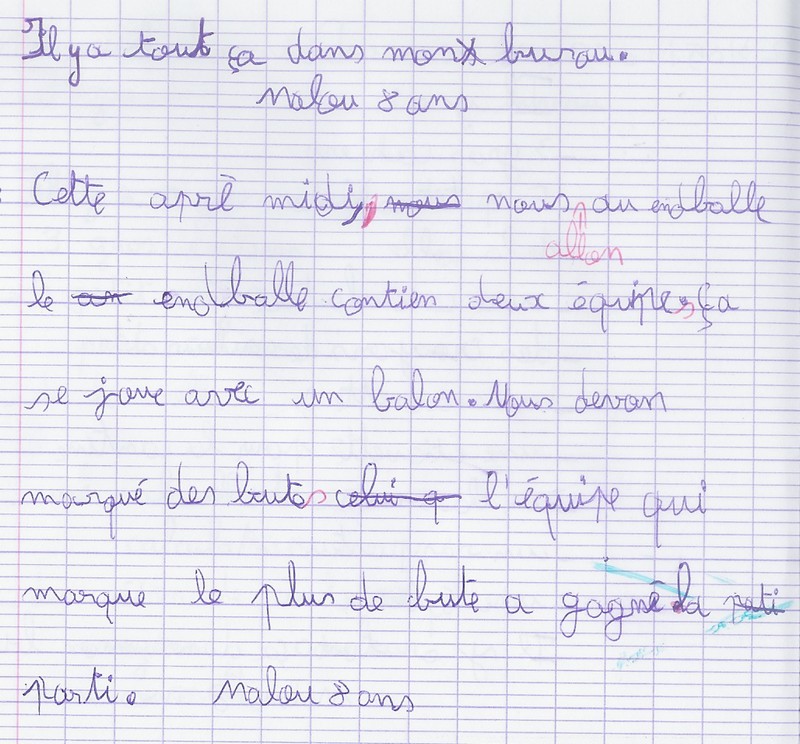 Il y a tout ça dans mon burau.
Malou 8 ans
Cette aprî midy, nous nous allon au endballe
le endballe contien deux équipes, ça
se joue avec un balon. Nous devon
marqué des butes l'équipe qui
marque le plus de bute a gagné la
parti. Malou 8 ans